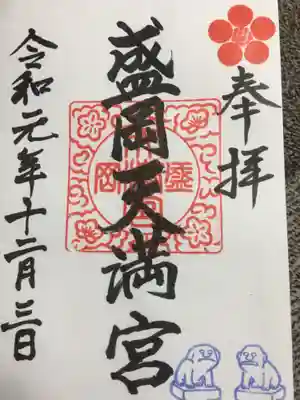 奉拝
盛岡天満宮
令和元年十二月三日